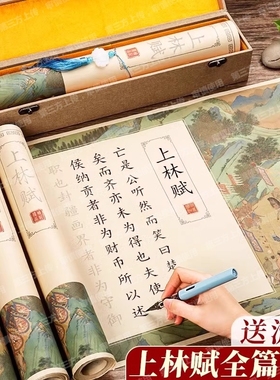 上林赋
亡是公听然而笑曰楚
矣而齐亦未为得也夫使
侯纳贡者非为财币所以述
职也封疆画界者非为守
上林赋
送
上林赋全篇